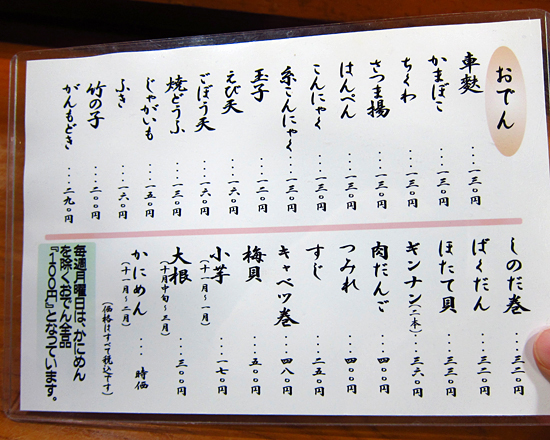 おでん
車麩・・・一三〇円
かまぼこ・・・一三〇円
ちくわ・・・一三〇円
さつま揚・・・一三〇円
はんぺん・・・一三〇円
こんにゃく・・・一三〇円
糸こんにゃく・・・一三〇円
玉子・・・一二〇円
えび天・・・一六〇円
ごぼう天・・・一六〇円
焼どうふ・・・一三〇円
じゃがいも・・・一五〇円
ふき・・・一六〇円
竹の子・・・二〇〇円
がんもどき・・・二九〇円
しのだ巻・・・三二〇円
ばくだん・・・三二〇円
ほたて貝・・・三三〇円
ギンナン(二本)・・・三六〇円
肉だんご・・・四〇〇円
つみれ・・・四〇〇円
すじ・・・二五〇円
キャベツ巻・・・四八〇円
梅貝・・・五〇〇円
小芋・・・一七〇円
(十一月~一月)
大根・・・三〇〇円
(十月中旬~三月)
かにめん・・・時価
(十一月~二月)
(価格はすべて税込です)
毎週月曜日は、かにめん
を除くおでん全品
『100円』となっています。